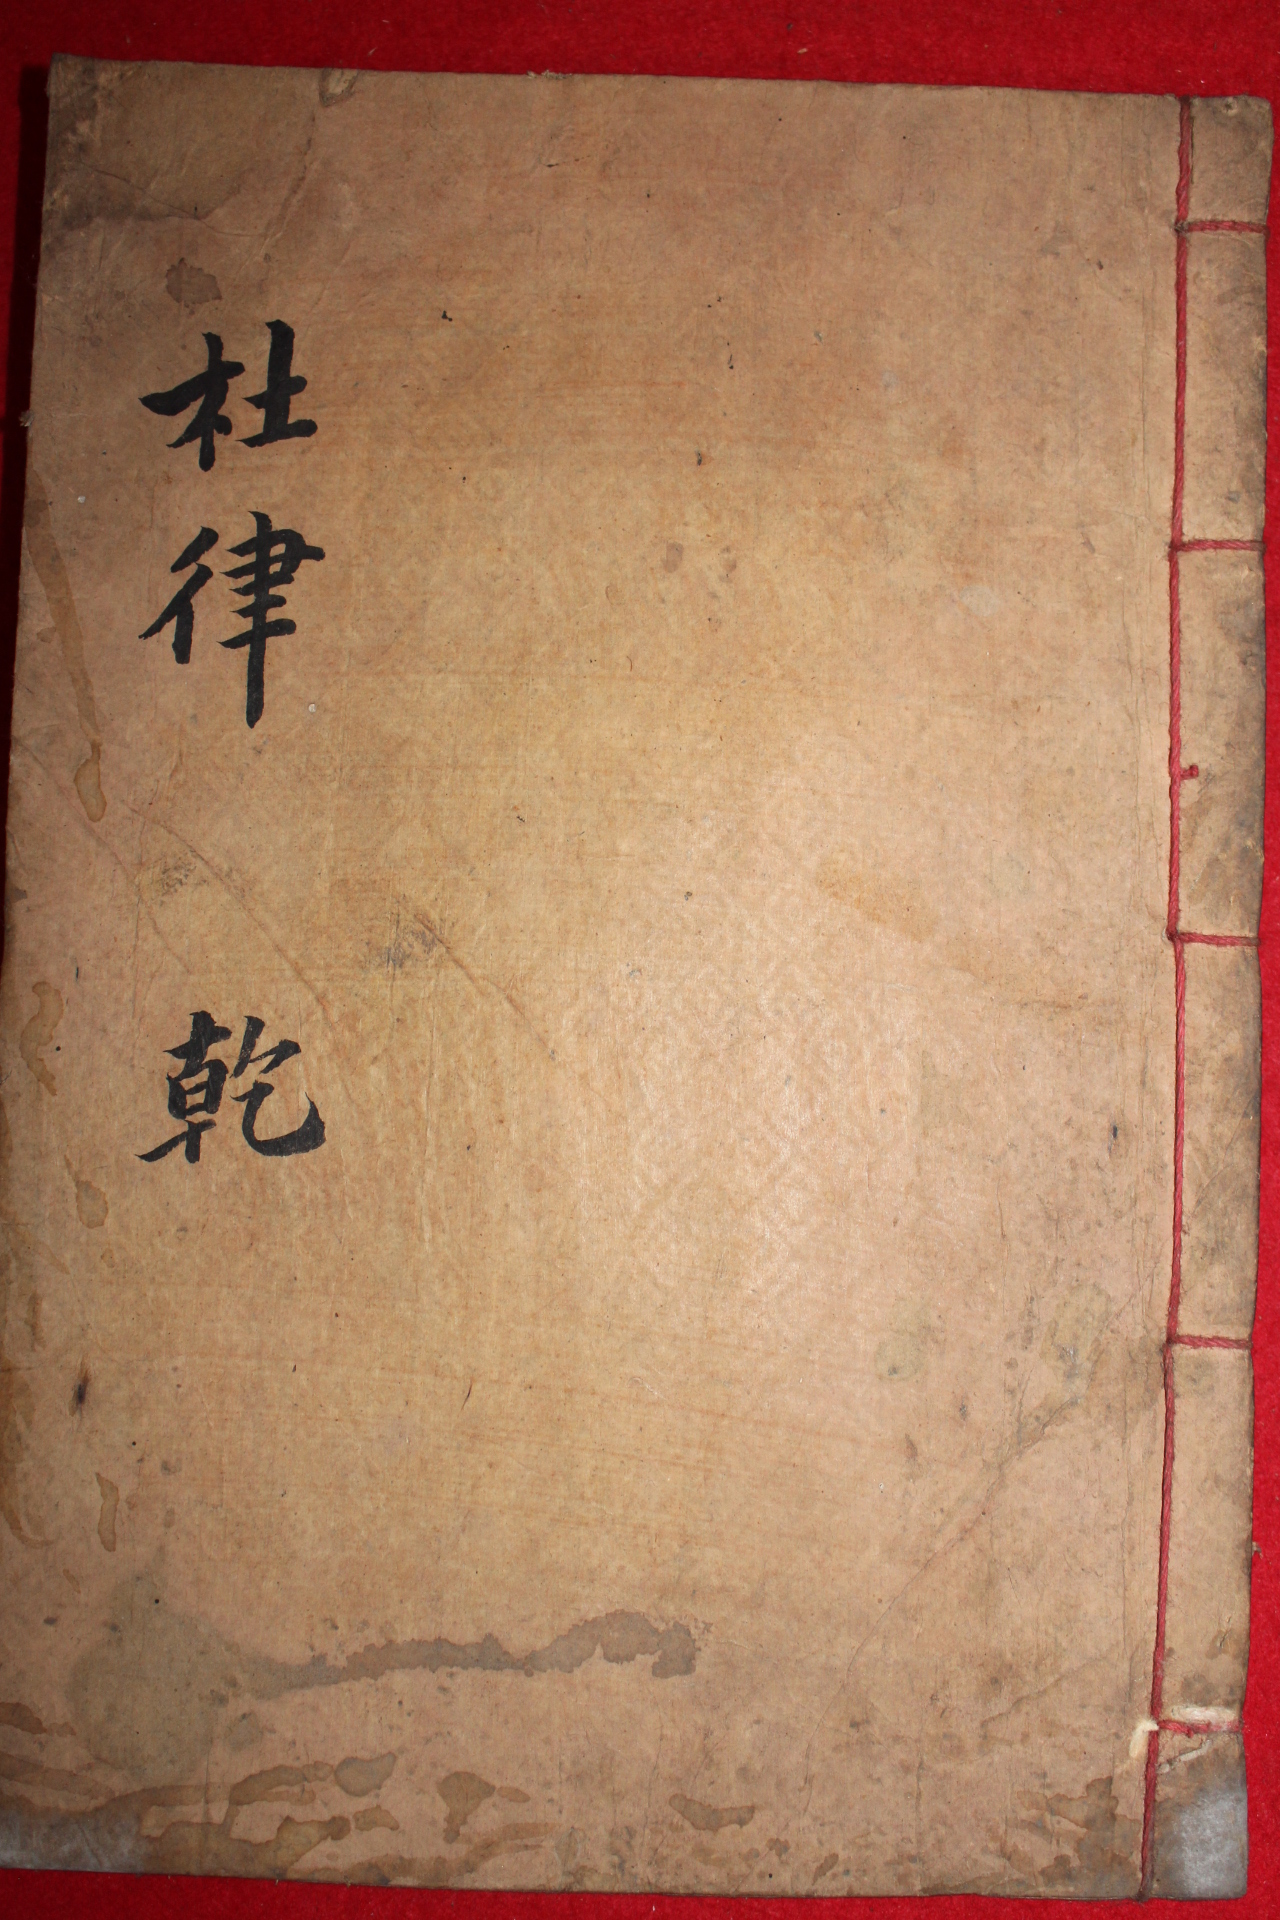 杜律
乾